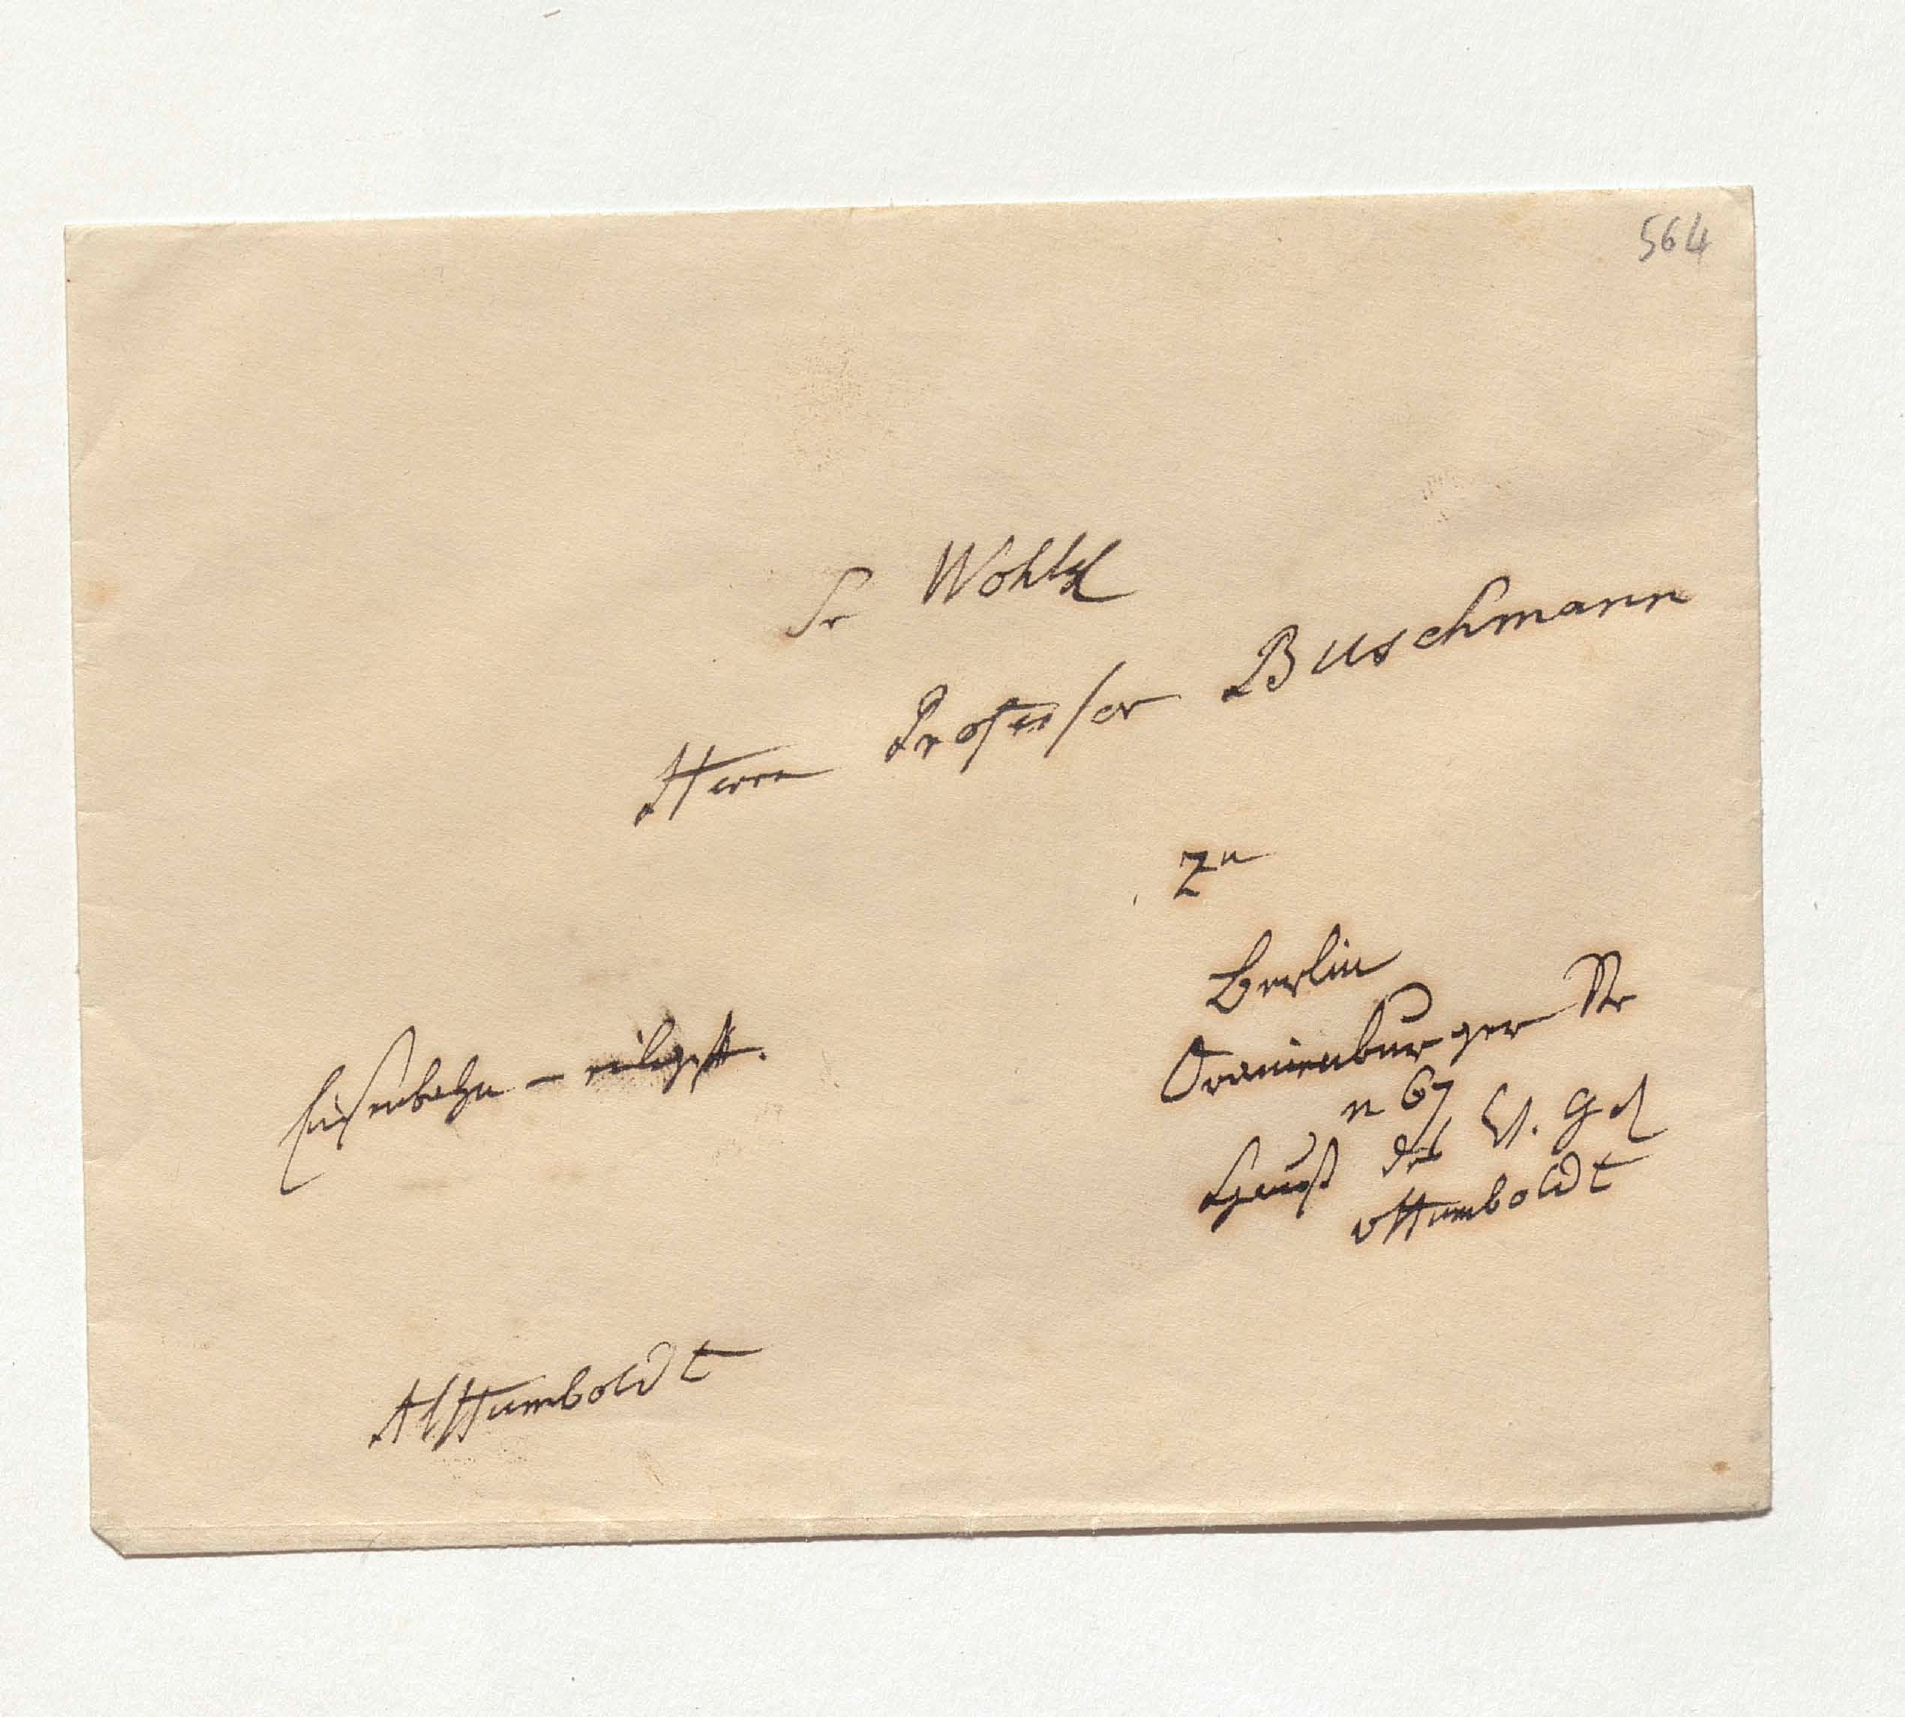 564
Sr Wohlg
Herrn Professor Buschmann
zu
Berlin
Oranienburger Str
n 67
Hauß des
vHumboldt
Eisenbahn – eiligst.
AlHumboldt